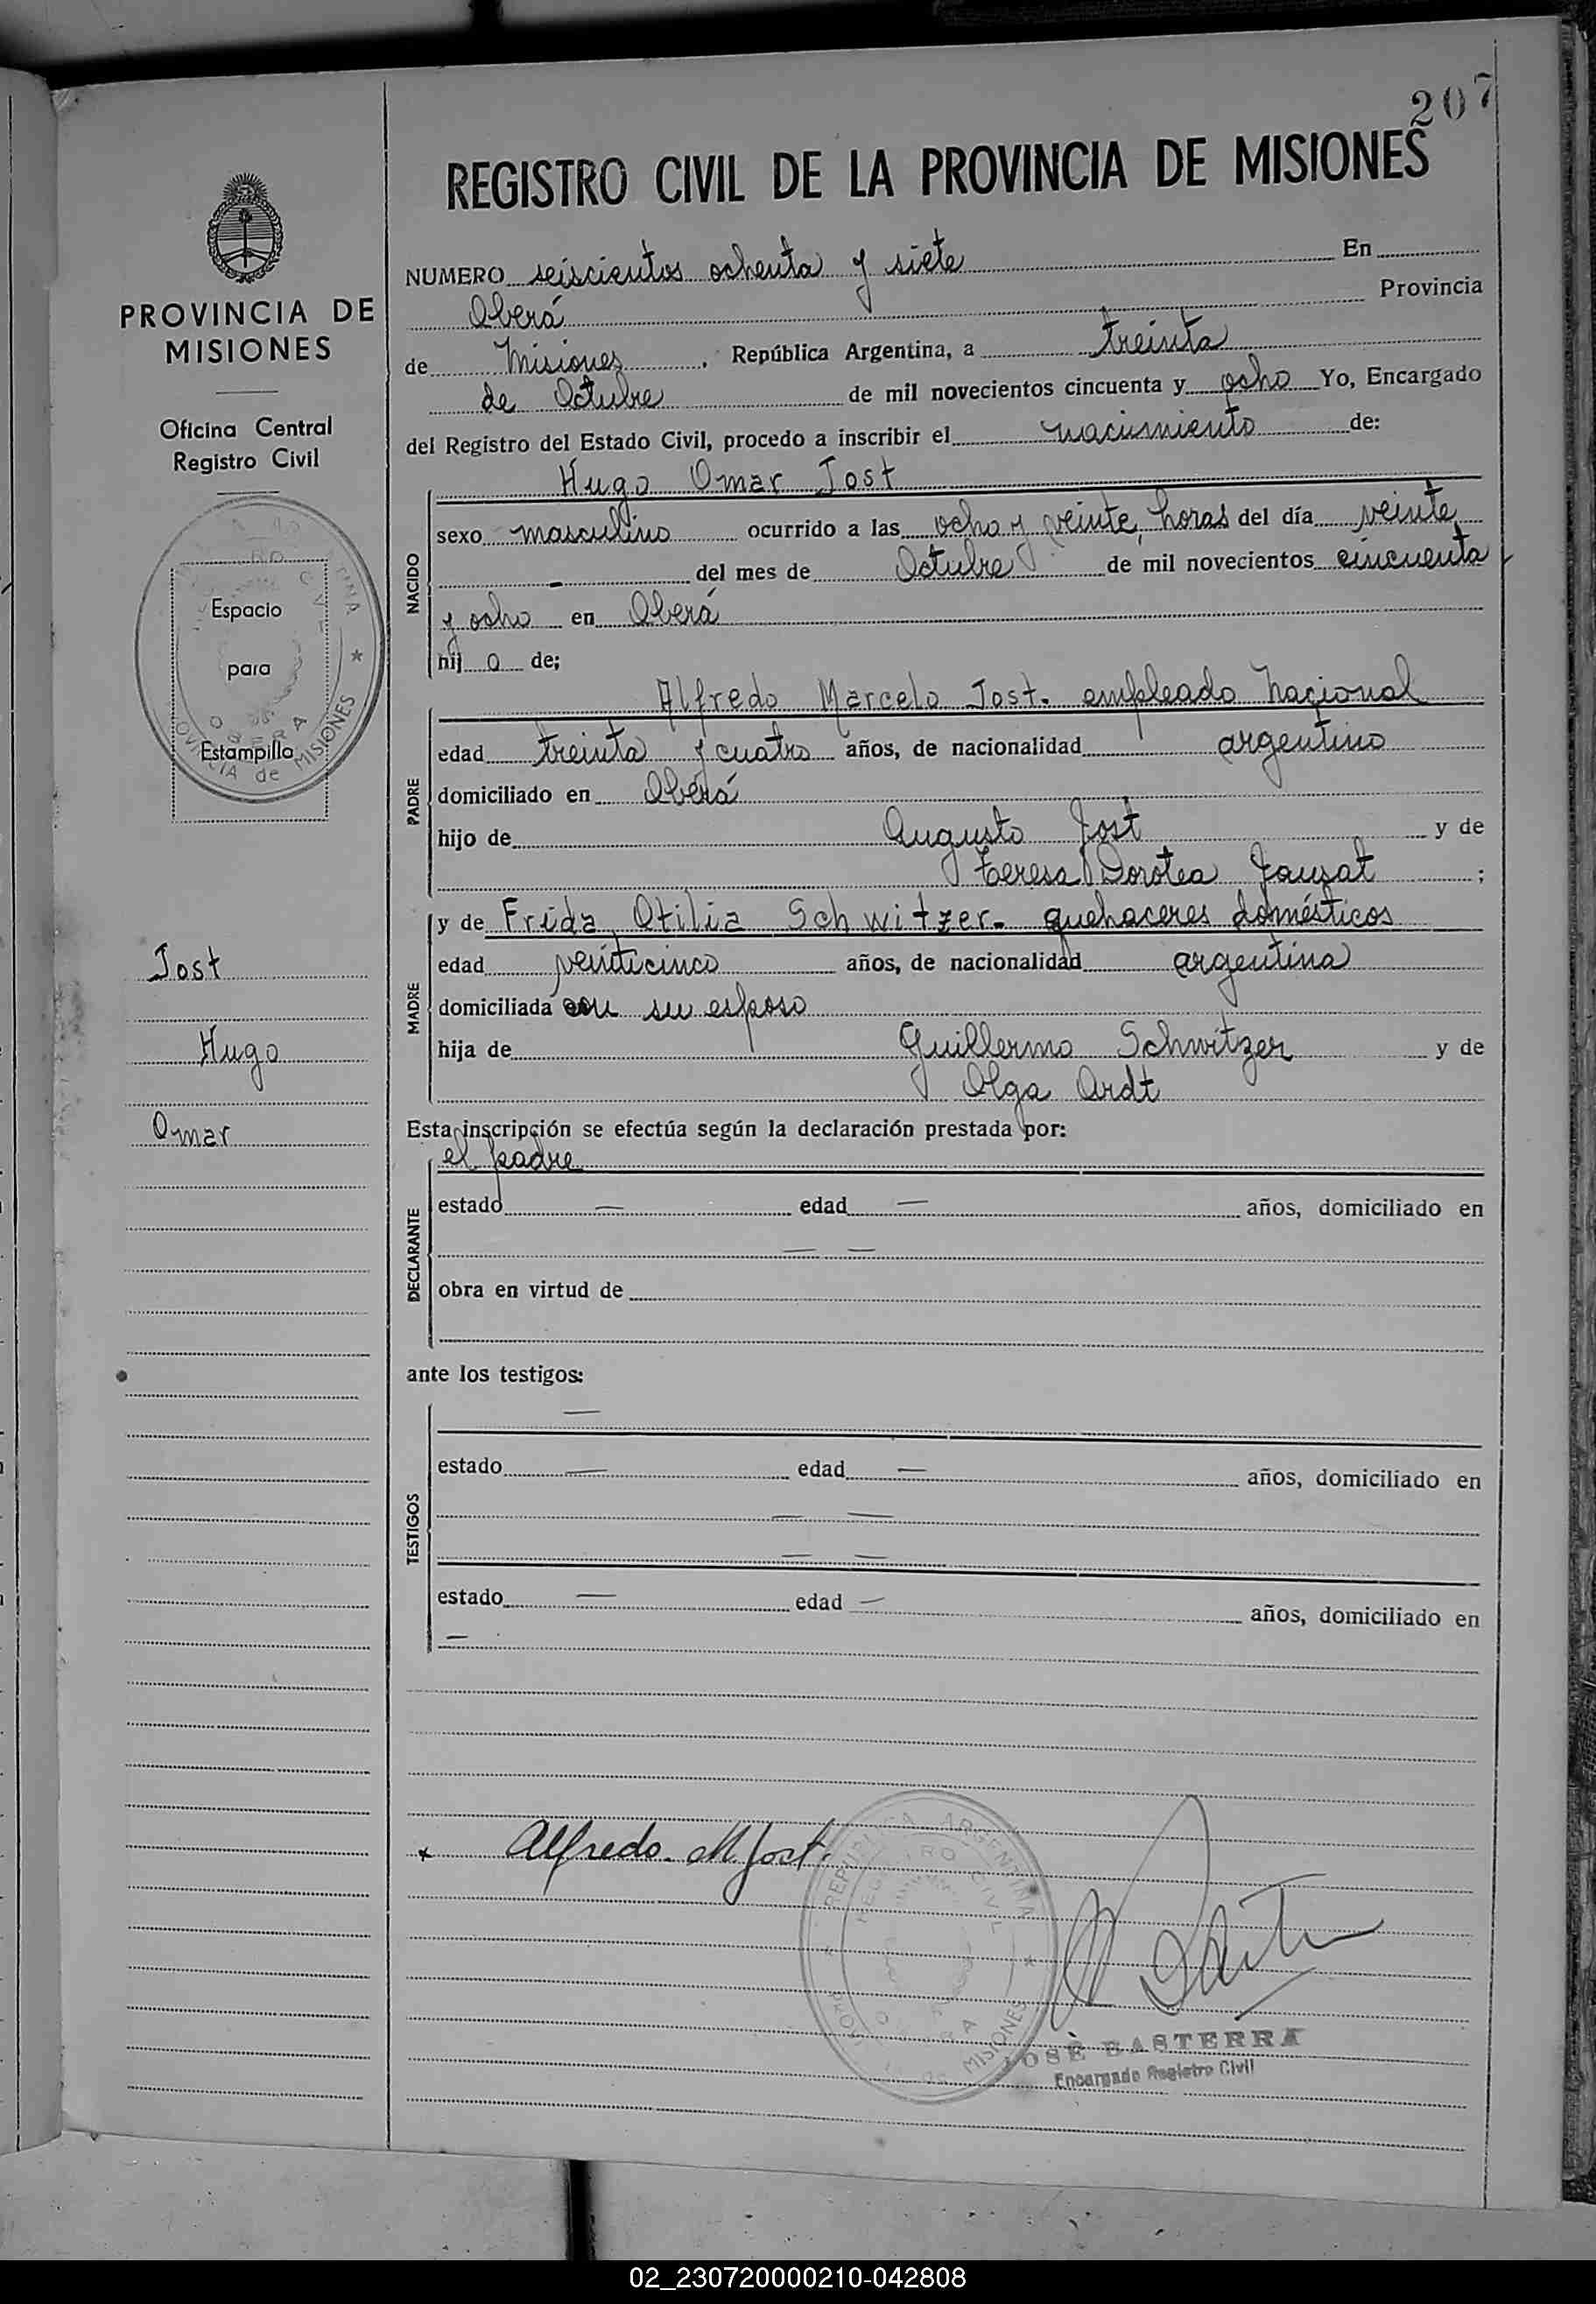 207
REGISTRO CIVIL DE LA PROVINCIA DE MISIONES
PROVINCIA DE
MISIONES
Oficina Central
Registro Civil
Espacio
para
Estampilla
Jost
Hugo
Omar
NUMERO seiscientos ochenta y siete En
Oberá Provincia
de Misiones, República Argentina, a treinta
de Octubre de mil novecientos cincuenta y ocho Yo, Encargado
del Registro del Estado Civil, procedo a inscribir el nacimiento de:
NACIDO
Hugo Omar Jost
sexo masculino ocurrido a las ocho y veinte horas del día veinte
- del mes de Octubre de mil novecientos cincuenta
y ocho en Oberá
hijo de;
PADRE
Alfredo Marcelo Jost. empleado nacional
edad treinta y cuatro años, de nacionalidad argentino
domiciliado en Oberá
hijo de Augusto Jost y de
Teresa Dorotea ;
MADRE
y de Frida Otilia Schwitzer. quehaceres domésticos
edad veinticinco años, de nacionalidad argentina
domiciliada con su esposo
hija de Guillermo Schwitzer y de
Olga Ardt
Esta inscripción se efectúa según la declaración prestada por:
DECLARANTE
el padre
estado — edad — años, domiciliado en
— —
obra en virtud de
ante los testigos:
TESTIGOS
—
estado — edad — años, domiciliado en
— —
— —
estado — edad — años, domiciliado en
—
x Alfredo. M. Jost.
REPUBLICA ARGENTINA
REGISTRO CIVIL
OBERA
MISIONES
JOSÈ BASTERRA
Encargado Registro Civil
02_230720000210-042808